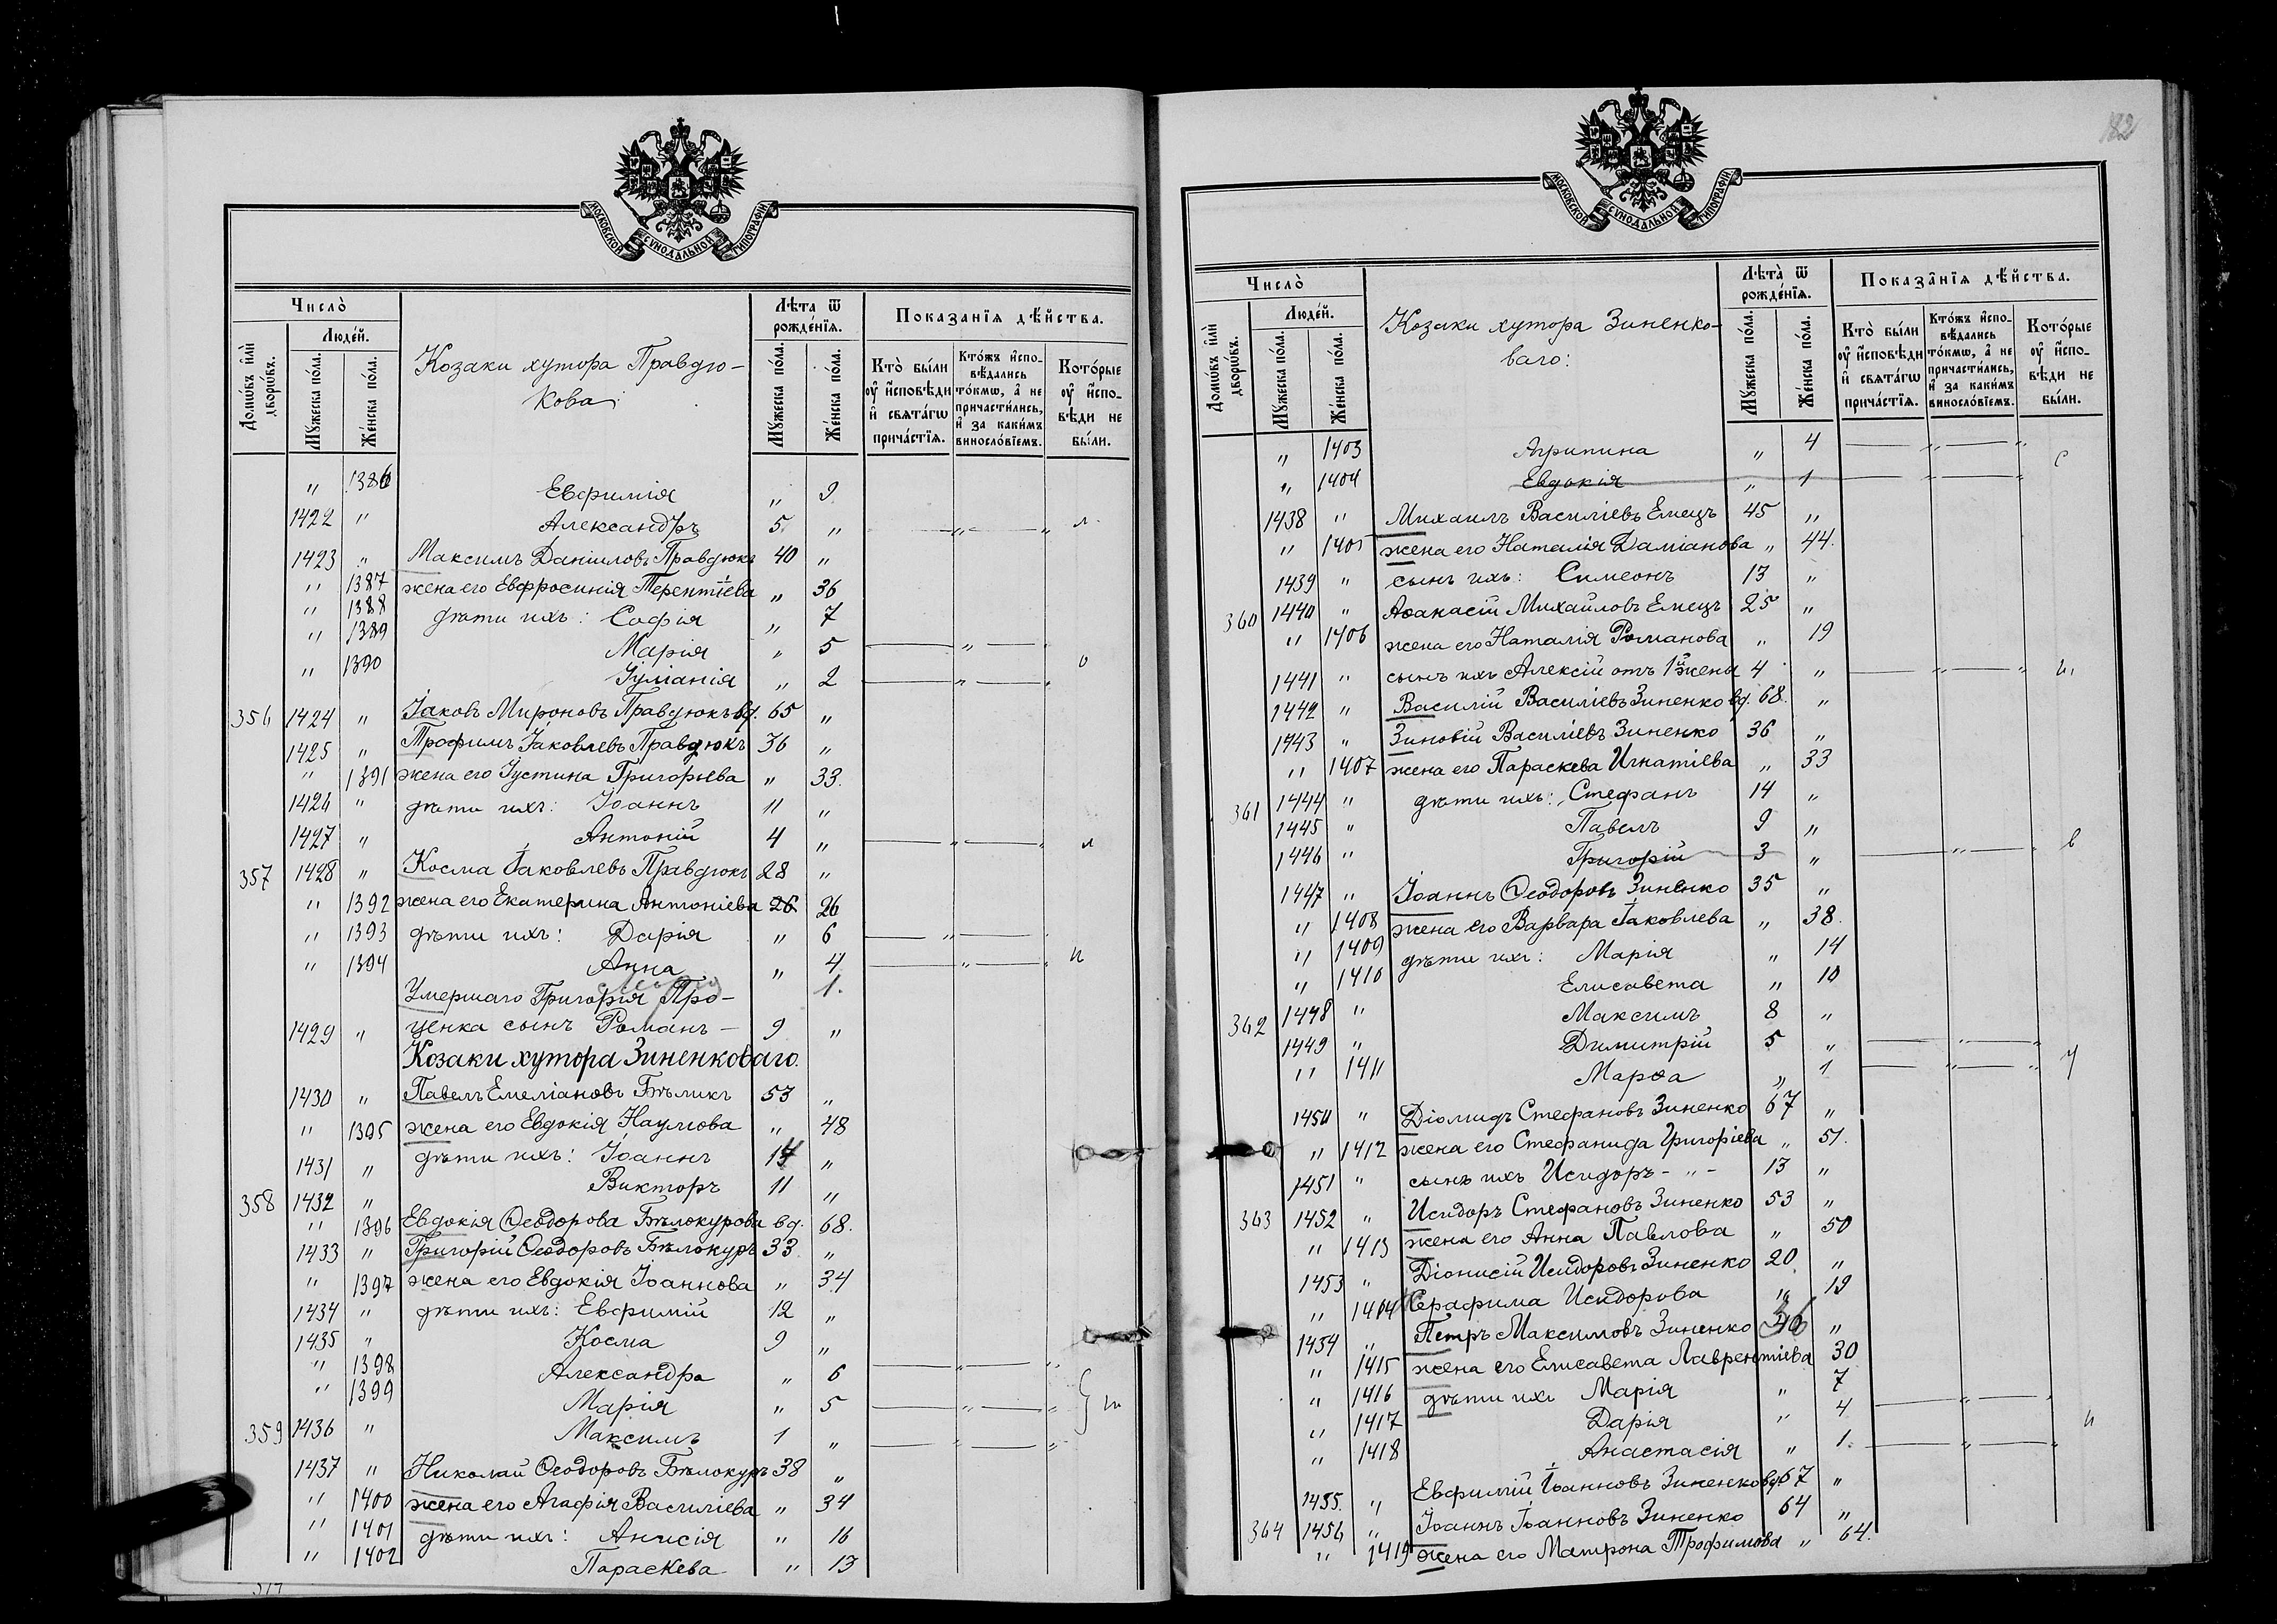 МОСКОВСКОЙ СѴНОДАЛЬНОЙ ТИПОГРАФІИ
Число̀
Домѡ́въ и҆лѝ дворѡ́въ.
Люде́й.
Мꙋ́жеска по́ла.
Же́нска по́ла.
Козаки хутора Правдю-
кова:
Лѣ́та ѿ рожде́нїѧ.
Мꙋ́жеска по́ла.
Же́нска по́ла.
Показа̑нїѧ дѣ́йства.
Кто̀ бы́ли оу҆ и҆сповѣ́ди и҆ свѧта́гѡ прича́стїѧ.
Кто́жъ и҆спо-вѣ́дались то́кмѡ, а҆ не причасти́лись, и҆ за каки́мъ винословїемъ.
Кото́рые оу҆ и҆спо-вѣ́ди не бы́ли.
" 1386 Евфимія " 9
1422 " Александръ 5 " — " — " л
1423 " Максимъ Даніиловъ Правдюкъ 40 "
" 1387 жена его Евфросинія Терентіева " 36
" 1388 дѣти ихъ: Софія " 7
" 1389 Марія " 5 — " — "
" 1390 Іуліанія " 2 — " — " о
356 1424 " Іаковъ Мироновъ Правдюкъ вд. 65 "
1425 " Трофимъ Іаковлевъ Правдюкъ 36 "
" 1391 жена его Іустина Григорьева " 33.
1426 " дѣти ихъ: Іоаннъ 11 "
1427 " Антоній 4 " — " — " л
357 1428 " Косма Іаковлевъ Правдюкъ 28 "
" 1392 жена его Екатерина Антоніева 26 26
" 1393 дѣти ихъ: Дарія " 6 — " — "
" 1394 Анна " 4 — " — " и
1.
Умершаго Григорія Про-
1429 " ценка сынъ Романъ — 9 "
Козаки хутора Зиненковаго.
1430 " Павелъ Емеліановъ Бѣликъ 53 "
" 1395 жена его Евдокія Наумова " 48
1431 " дѣти ихъ: Іоаннъ 14 "
358 1432 " Викторъ 11 "
" 1396 Евдокія Ѳеодорова Бѣлокурова вд. 68.
1433 " Григорій Ѳеодоровъ Бѣлокуръ 33 "
" 1397 жена его Евдокія Іоаннова " 34
1434 " дѣти ихъ: Евфимій 12 "
1435 " Косма 9 "
" 1398 Александра " 6 — " — "
" 1399 Марія " 5 — " — "
359 1436 " Максимъ 1 " — " — "
1437 " Николай Ѳеодоровъ Бѣлокуръ 38 "
" 1400 жена его Агафія Василіева " 34
" 1401 дѣти ихъ: Анисія " 16
" 1402 Параскева " 13
182
МОСКОВСКОЙ СѴНОДАЛЬНОЙ ТИПОГРАФІИ
Число̀
Домѡ́въ и҆лѝ дворѡ́въ.
Люде́й.
Мꙋ́жеска по́ла.
Же́нска по́ла.
Козаки хутора Зиненко-
ваго:
Лѣта̀ ѿ рожде́нїѧ.
Мꙋ́жеска по́ла.
Же́нска по́ла.
Показа̑нїѧ дѣ́йства.
Кто̀ бы́ли оу҆ и҆сповѣ́ди и҆ свѧта́гѡ прича́стїѧ.
Кто́жъ и҆спо-вѣ́дались то́кмѡ, а҆ не причасти́лись, и҆ за каки́мъ винословїемъ.
Кото́рые оу҆ и҆спо-вѣ́ди не бы́ли.
" 1403 Агрипина " 4 — " — "
" 1404 Евдокія " 1 — " — " с
1438 " Михаилъ Василіевъ Емецъ 45 "
" 1405 жена его Наталія Даміанова " 44.
1439 " сынъ ихъ: Симеонъ 13 "
360 1440 " Аѳанасій Михайловъ Емецъ 25 "
" 1406 жена его Наталія Романова " 19
1441 " сынъ ихъ Алексій отъ 1й жены 4 " — " — "
1442 " Василій Василіевъ Зиненко вд. 68. "
1443 " Зиновій Василіевъ Зиненко 36 "
" 1407 жена его Параскева Игнатіева " 33
361 1444 " дѣти ихъ: Стефанъ 14 "
1445 " Павелъ 9 "
1446 " Григорій 3 " — " — " в
1447 " Іоаннъ Ѳеодоровъ Зиненко 35 "
" 1408 жена его Варвара Іаковлева " 38.
" 1409 дѣти ихъ: Марія " 14
" 1410 Елисавета " 10
362 1448 " Максимъ 8 "
1449 " Димитрій 5 " — " — "
" 1411 Марѳа " 1 — " — " у
1450 " Діомидъ Стефановъ Зиненко 67 "
" 1412 жена его Стефанида Григоріева " 51.
1451 " сынъ ихъ Исидоръ - " - 13 "
363 1452 " Исидоръ Стефановъ Зиненко 53 "
" 1413 жена его Анна Павлова " 50
1453 " Діонисій Исидоровъ Зиненко 20 "
" 1414 Серафима Исидорова " 19
1454 " Петръ Максимовъ Зиненко 36 "
" 1415 жена его Елисавета Лаврентіева 30
" 1416 дѣти ихъ Марія " 7
" 1417 Дарія " 4 — " — "
" 1418 Анастасія " 1. — " — " и
1455. " Евфимій Іоанновъ Зиненко вд. 67 "
364 1456 " Іоаннъ Іоанновъ Зиненко 64 "
" 1419 жена его Матрона Трофимова " 64.